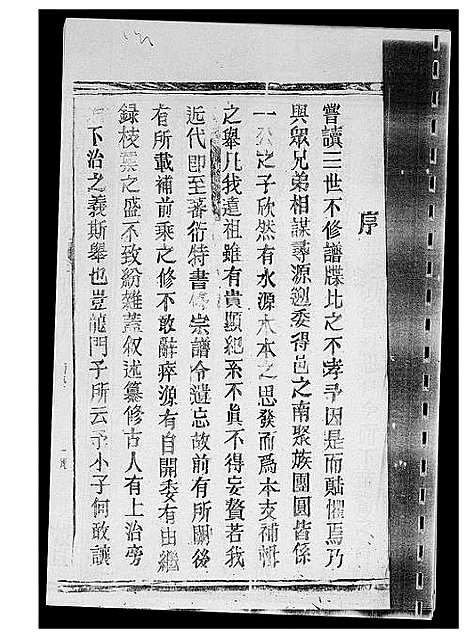 序
嘗讀三世不修譜牒比之不孝予因是而㷀懼焉乃
與眾兄弟相謀尋源遡委得邑之南聚族團圓皆係
一公之子欣然有水源木本之思發而爲本支補輯
之舉凡我遠祖雖有貴顯紀系不眞不得妄贅若我
近代即至蕃衍特書修宗譜令遺忘故前有所闕後
有所載補前乘之修不敢辭瘁源有自開委有由繼
録枝葉之盛不致紛雜蓋叙述纂修古人有上治旁
下治之義斯舉也豈龍門子所云予小子何敢讓